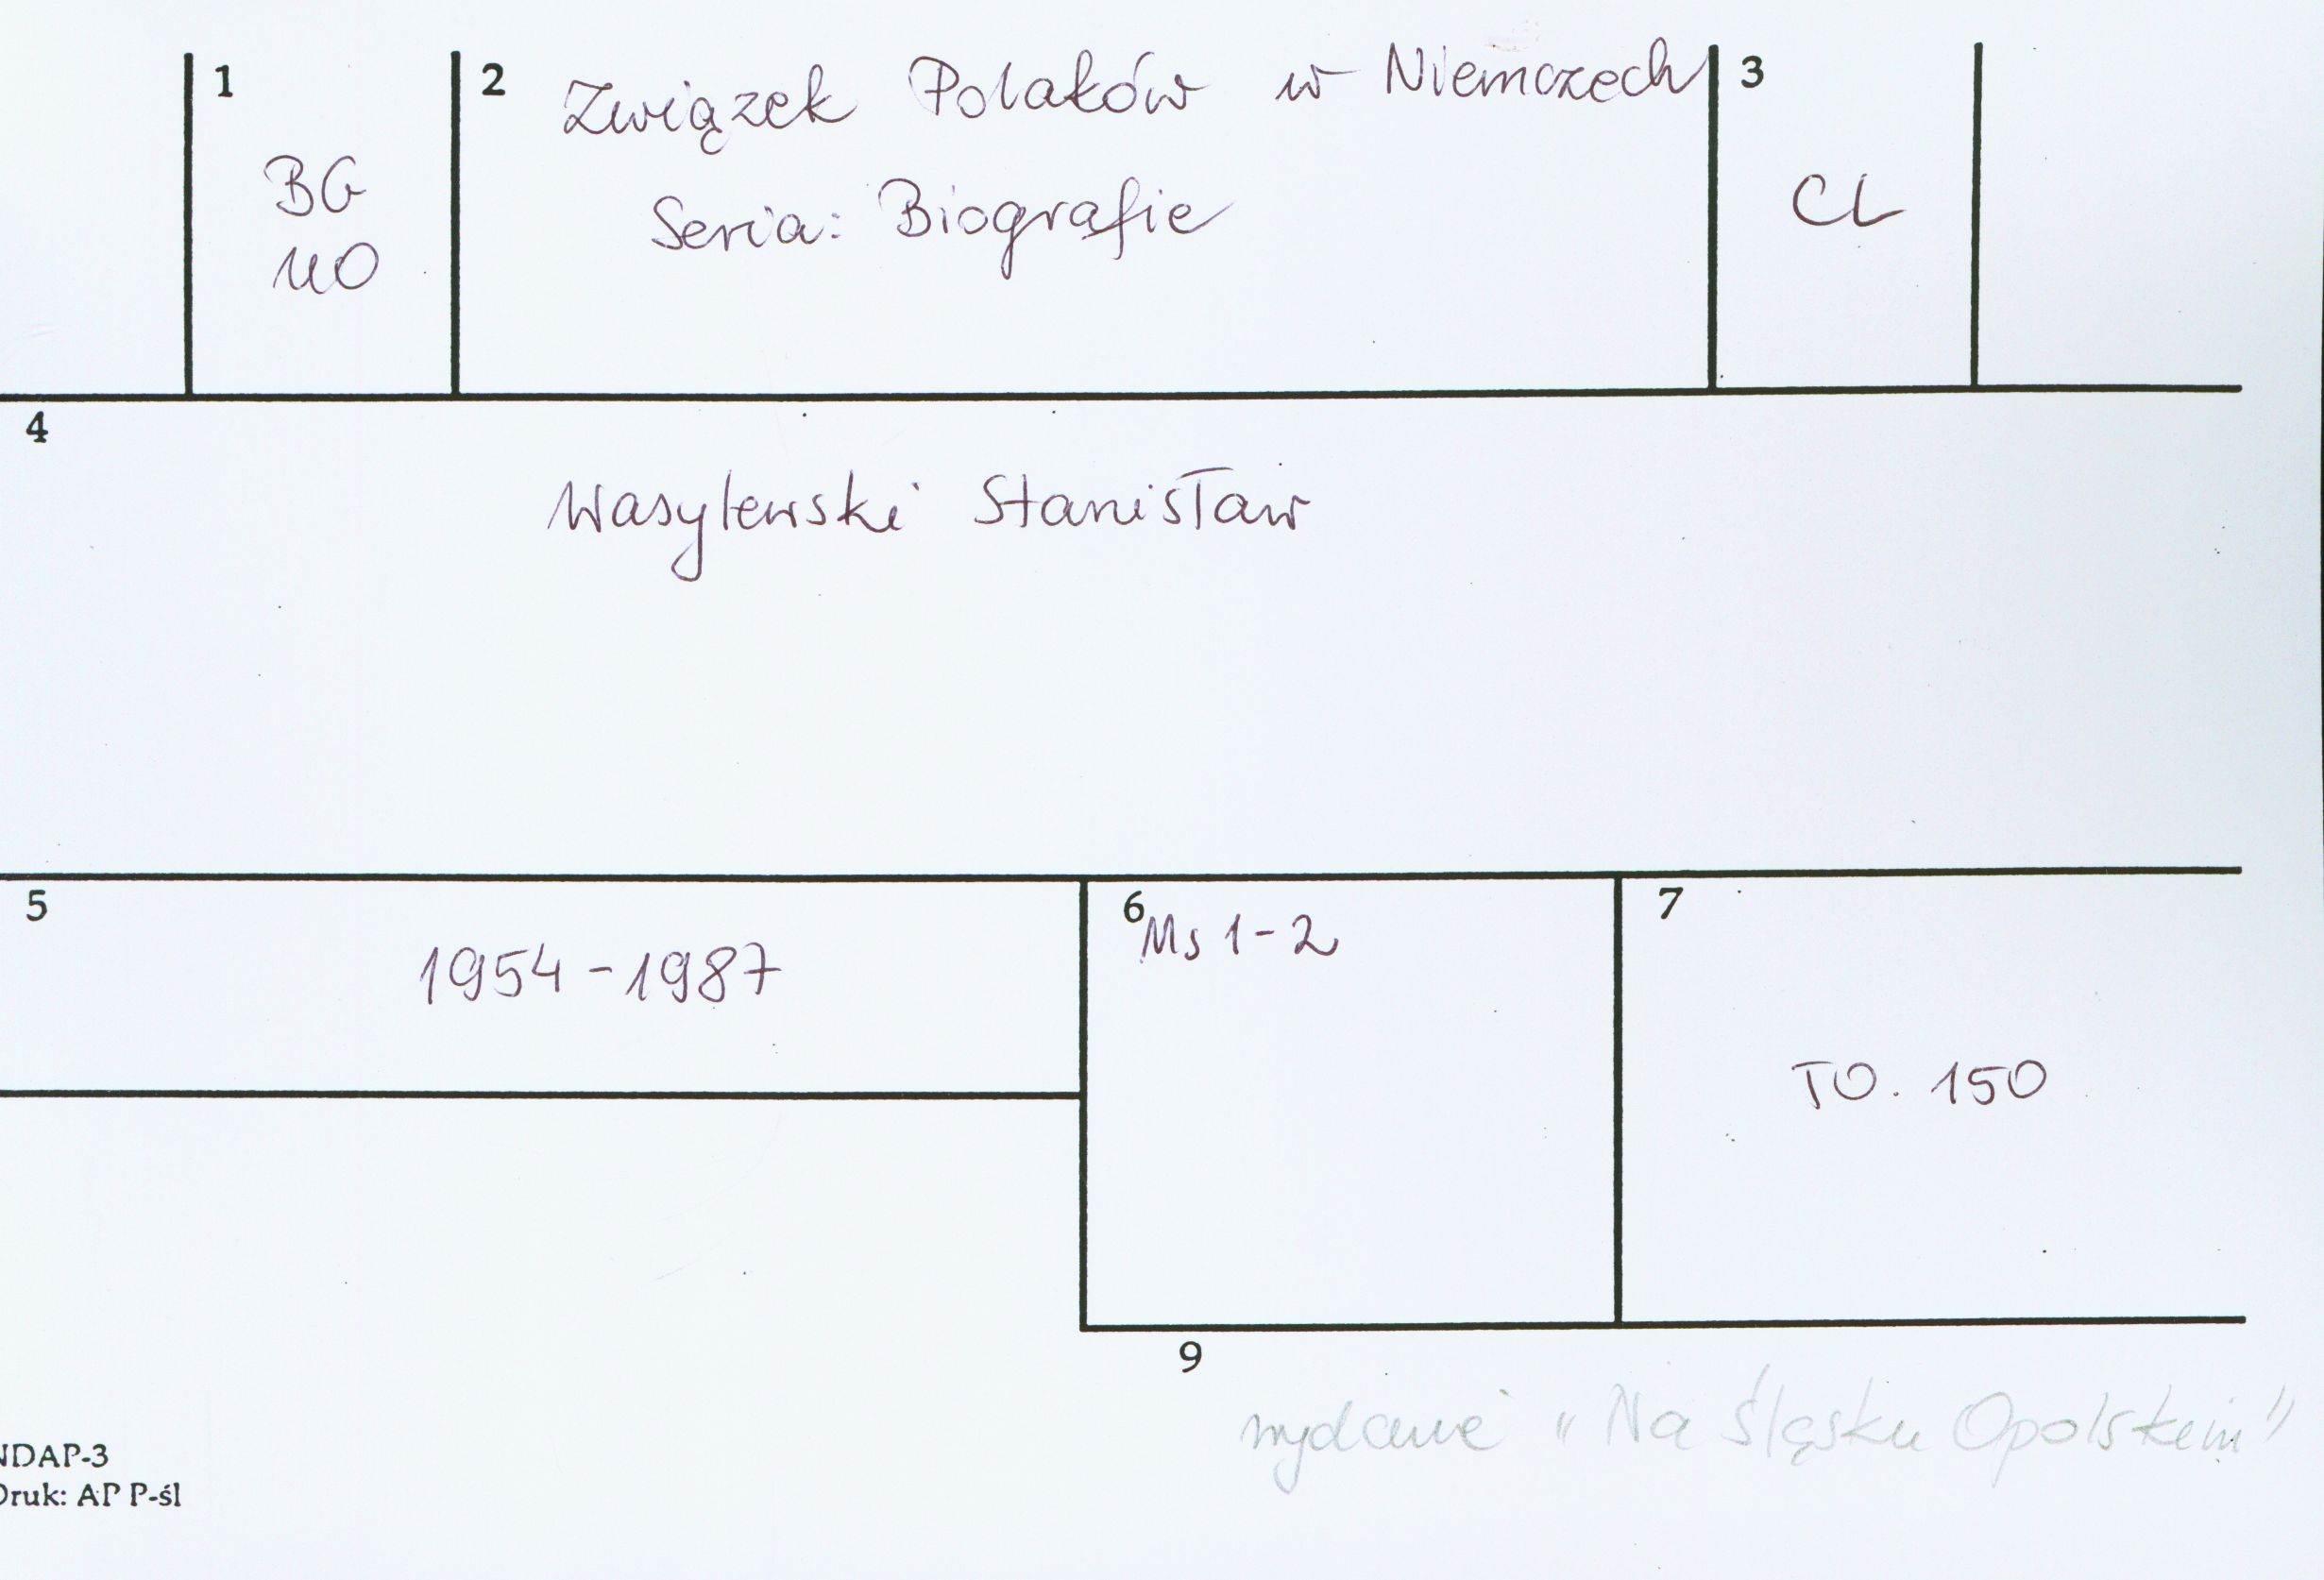 1
BG
UO
2
Związek Polaków w Niemczech
Seria: Biografie
3
CL
4
Wasylewski Stanisław
5
1954-1987
6
Ms 1-2
7
TO. 150
9
wydanie "Na Śląsku Opolskim"
NDAP-3
Druk: AP P-śl